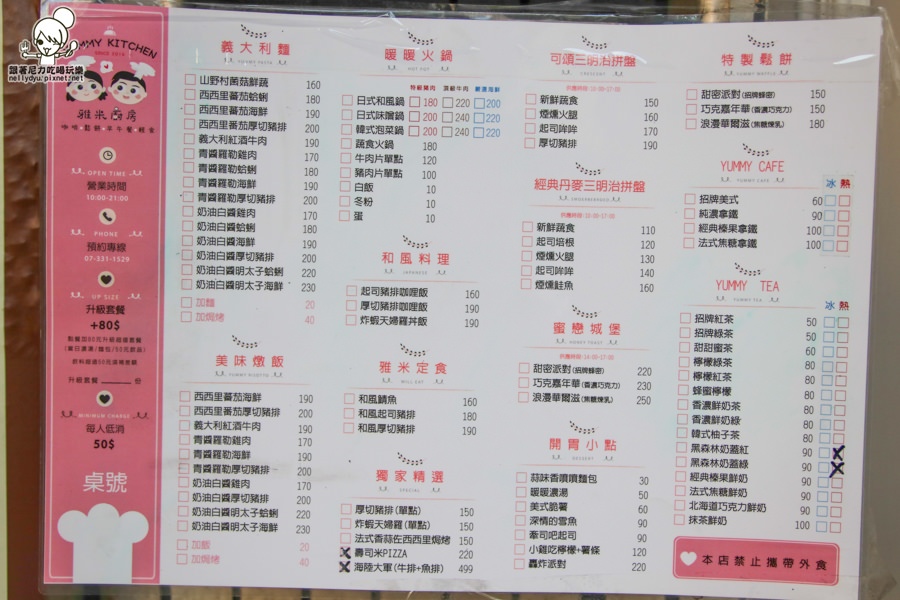 跟著尼力吃喝玩樂
nellydyu.pixnet.net
YUMMY KITCHEN
雅米廚房
咖啡•鬆餅•早午餐•輕食
OPEN TIME
營業時間
10:00-21:00
PHONE
預約專線
07-331-1529
UP SIZE
升級套餐
+80$
升級套餐 份
MINIMUM CHARGE
每人低消
50$
桌號
義大利麵
山野村菌菇鮮蔬 160
西西里蕃茄蛤蜊 180
西西里蕃茄海鮮 190
西西里蕃茄厚切豬排 200
義大利紅酒牛肉 190
青醬羅勒雞肉 170
青醬羅勒蛤蜊 180
青醬羅勒海鮮 190
青醬羅勒厚切豬排 200
奶油白醬雞肉 170
奶油白醬蛤蜊 180
奶油白醬海鮮 190
奶油白醬厚切豬排 200
奶油白醬明太子蛤蜊 220
奶油白醬明太子海鮮 230
加麵 20
加焗烤 40
美味燉飯
YUMMY RISOTTO
西西里蕃茄海鮮 190
西西里蕃茄厚切豬排 200
義大利紅酒牛肉 190
青醬羅勒雞肉 170
青醬羅勒海鮮 190
青醬羅勒厚切豬排 200
奶油白醬雞肉 170
奶油白醬厚切豬排 200
奶油白醬明太子蛤蜊 220
奶油白醬明太子海鮮 230
加飯 20
加焗烤 40
暖暖火鍋
HOT POT
特級豬肉 頂級牛肉 嚴選海鮮
日式和風鍋 180 220 200
日式味噌鍋 200 240 220
韓式泡菜鍋 200 240 220
蔬食火鍋 180
牛肉片單點 120
豬肉片單點 100
白飯 10
冬粉 10
蛋 10
和風料理
JAPANESE
起司豬排咖哩飯 160
厚切豬排咖哩飯 190
炸蝦天婦羅丼飯 190
雅米定食
和風鯖魚 160
和風起司豬排 180
和風厚切豬排 190
獨家精選
SPECIAL
厚切豬排(單點) 150
炸蝦天婦羅(單點) 150
法式香蒜佐西西里焗烤 150
壽司米PIZZA 220
海陸大軍(牛排+魚排) 499
可頌三明治拼盤
供應時間:10:00-17:00
新鮮蔬食 150
煙燻火腿 160
起司哞哞 170
厚切豬排 190
經典丹麥三明治拼盤
供應時間:10:00-17:00
新鮮蔬食 110
起司培根 120
煙燻火腿 130
起司哞哞 140
煙燻鮭魚 160
蜜戀城堡
HONEY TOAST
供應時間:14:00-17:00
甜蜜派對(招牌蜂密) 220
巧克嘉年華(香濃巧克力) 230
浪漫華爾滋(焦糖煉乳) 250
開胃小點
DESSERT
蒜味香噴噴麵包 30
暖暖濃湯 50
美式脆薯 60
深情的雪魚 90
牽司吧起司 90
小雞吃檸檬+薯條 120
轟炸派對 220
特製鬆餅
YUMMY WAFFLE
甜密派對(招牌蜂密) 150
巧克嘉年華(香濃巧克力) 150
浪漫華爾滋(焦糖煉乳) 180
YUMMY CAFE
YUMMY CAFE
冰 熱
招牌美式 60
純濃拿鐵 90
經典榛果拿鐵 100
法式焦糖拿鐵 100
YUMMY TEA
YUMMY TEA
冰 熱
招牌紅茶 50
招牌綠茶 50
甜甜蜜茶 60
檸檬綠茶 80
檸檬紅茶 80
蜂蜜檸檬 80
香濃鮮奶茶 80
香濃鮮奶綠 80
韓式柚子茶 80
黑森林奶蓋紅 90
黑森林奶蓋綠 90
經典榛果鮮奶 90
法式焦糖鮮奶 90
北海道巧克力鮮奶 90
抹茶鮮奶 100
本店禁止攜帶外食